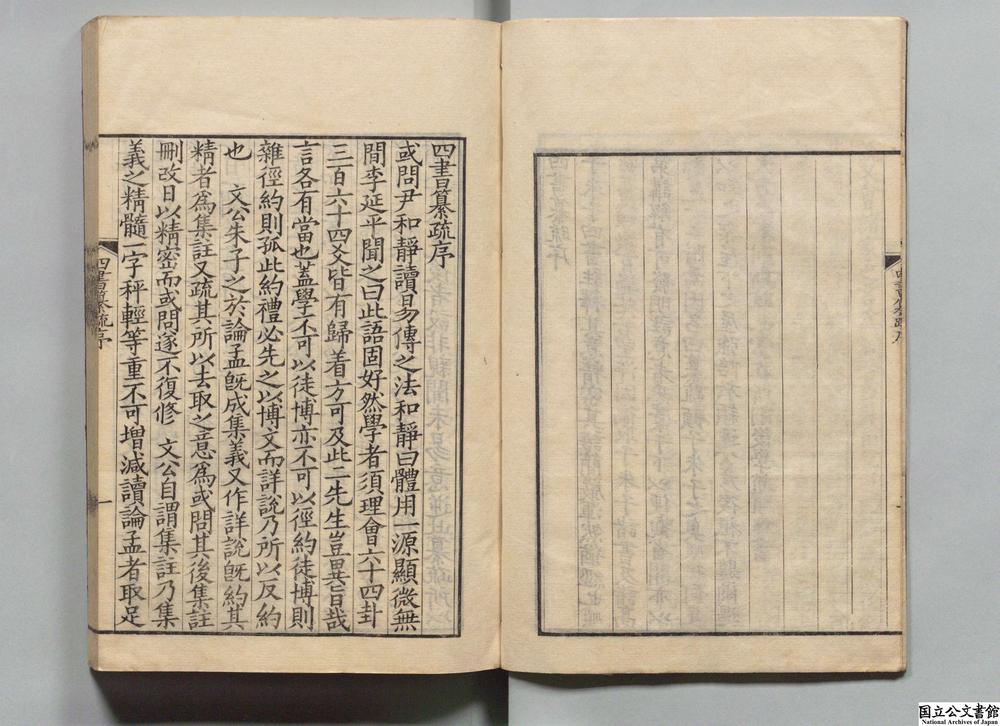 四書纂疏序
或問尹和靜讀易傳之法和靜曰體用一源顯微無
間李延平聞之曰此語固好然學者須理會六十四卦
三百六十四爻皆有歸着方可及此二先生豈異旨哉
言各有當也蓋學不可以徒博亦不可以徑約徒博則
雜徑約則孤此約禮必先之以博文而詳說乃所以反約
也 文公朱子之於論孟旣成集義又作詳說旣約其
精者為集註又疏其所以去取之意為或問其後集註
刪改日以精密而或問遂不復修 文公自謂集註乃集
義之精髓一字秤輕等重不可增減讀論孟者取足
四書纂疏序
一
国立公文書館
National Archives of Japan